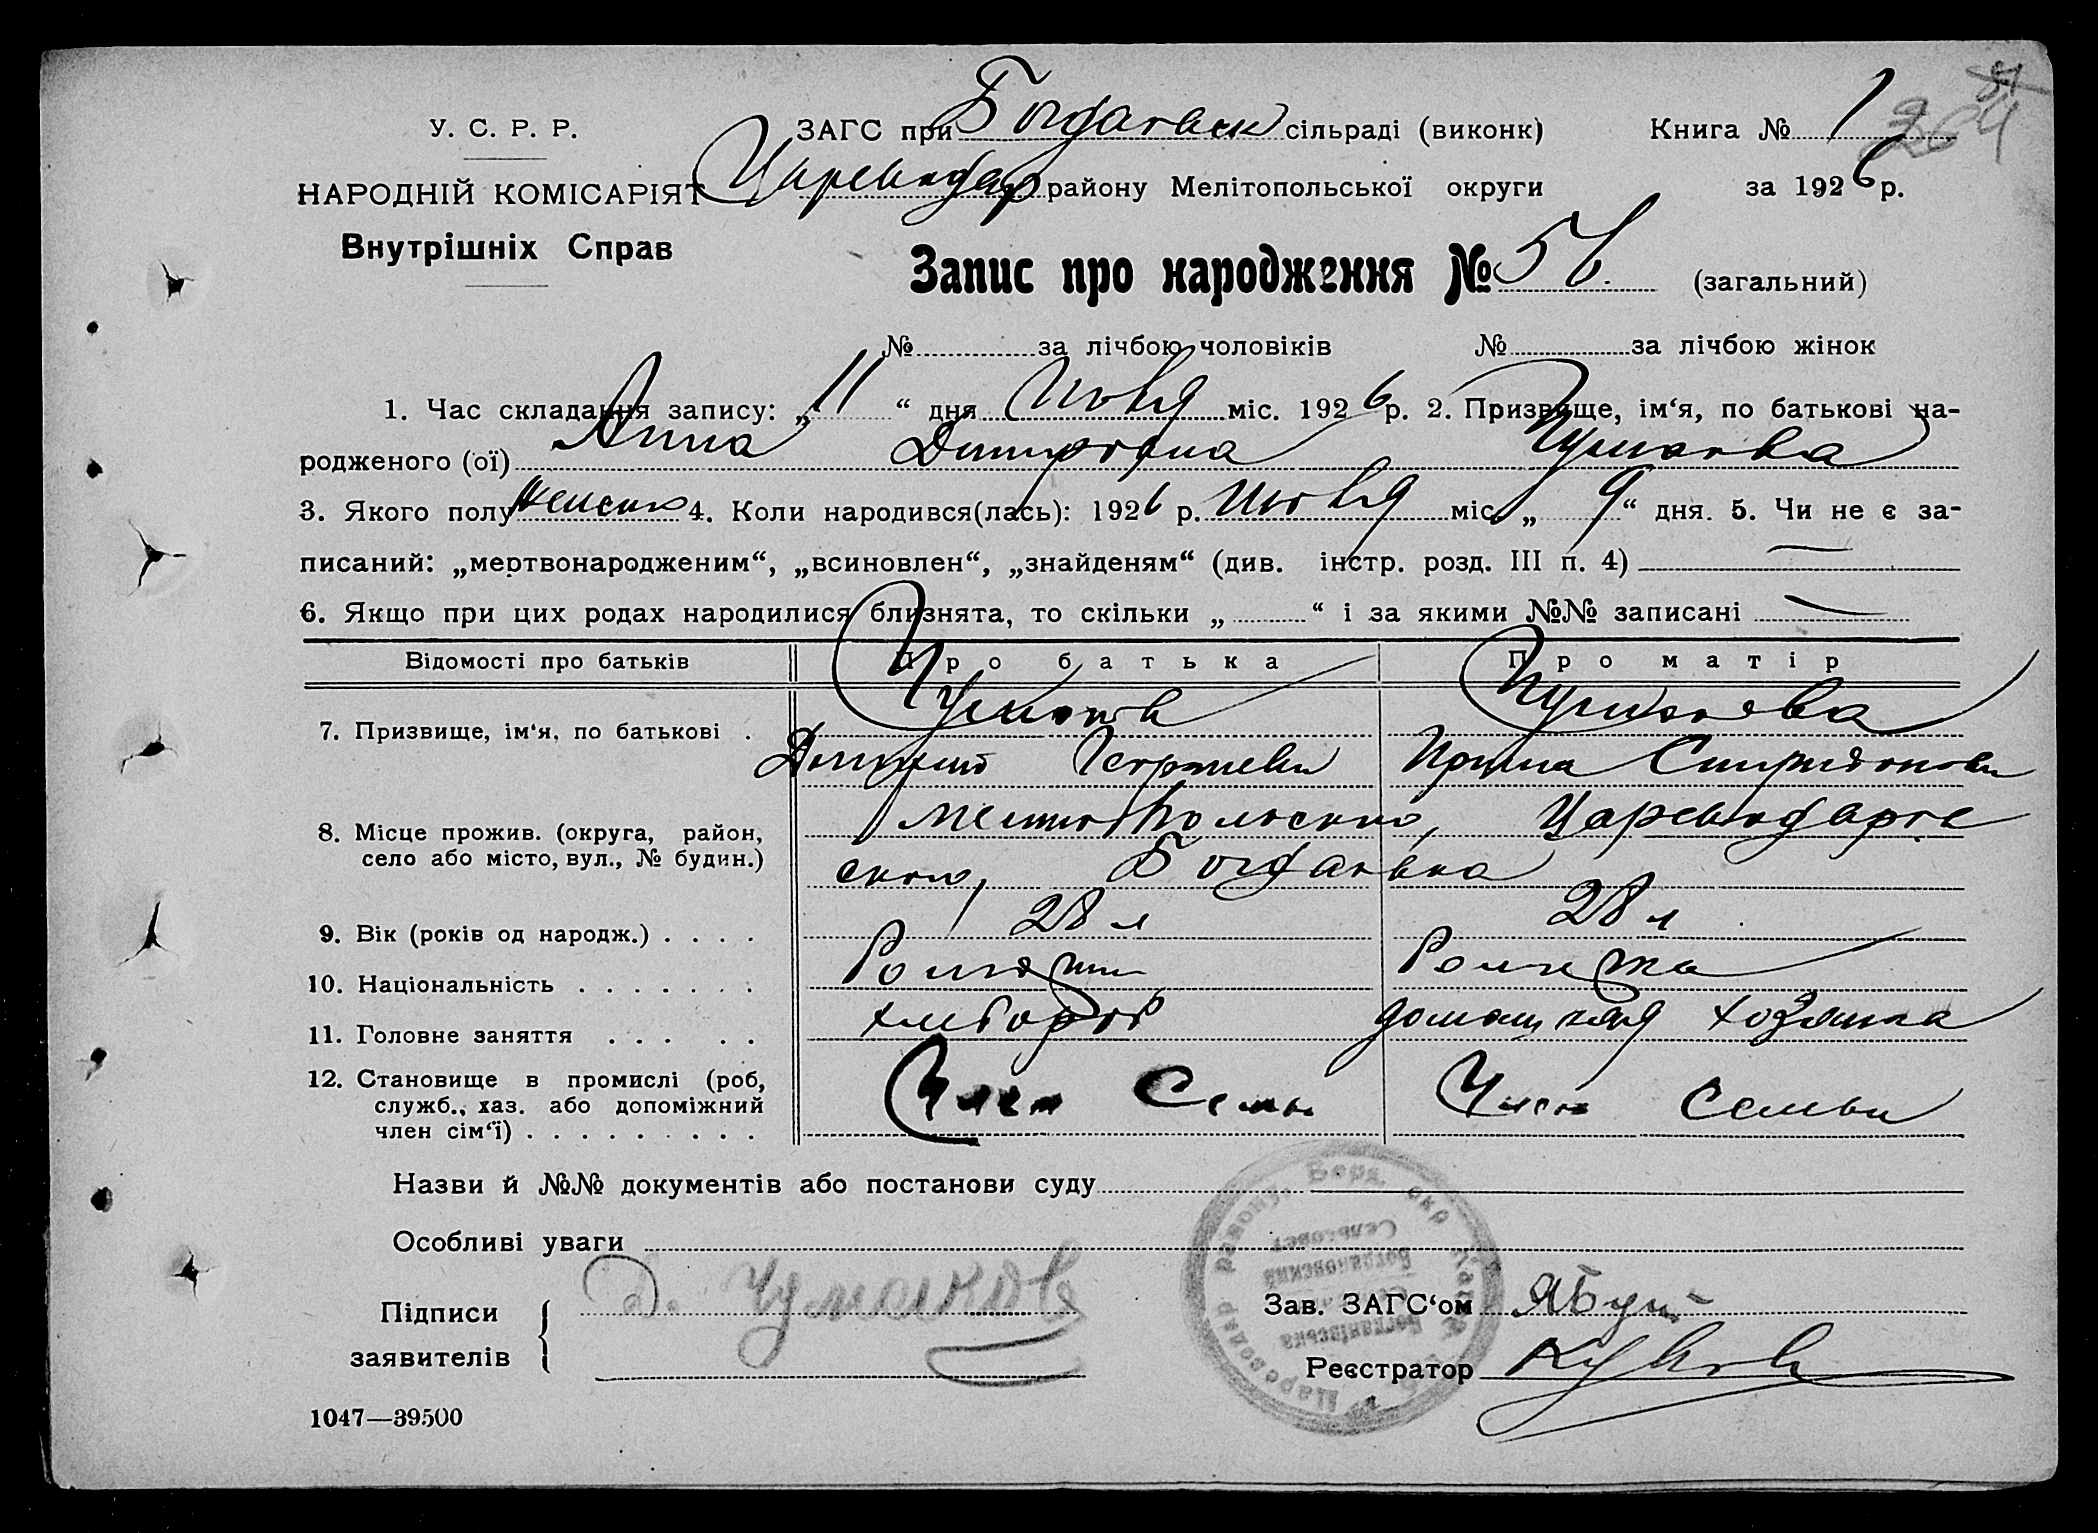 У. С. Р. Р.
НАРОДНІЙ КОМІСАРІЯТ
Внутрішніх Справ
ЗАГС при Богдановск сільраді (виконк)
Цареводар району Мелітопольської округи
Книга № 1
за 1926 р.
Запис про народження № 56. (загальний)
№ за лічбою чоловіків № за лічбою жінок
1. Час складання запису: „11“ дня Июня міс. 1926 р. 2. Призвище, ім‘я, по батькові на-
родженого (ої) Анна Дмитровна Чумакова
3. Якого полу женск 4. Коли народився(лась): 1926 р. Июня міс. „9“ дня. 5. Чи не є за-
писаний: „мертвонародженим“, „всиновлен“, „знайденям“ (див. інстр. розд. III п. 4) —
6. Якщо при цих родах народилися близнята, то скільки „ “ і за якими №№ записані —
Відомості про батьків Про батька Про матір
7. Призвище, ім‘я, по батькові . Чумаков Чумакова
Дмитрий Георгиеви Ирина Спиридонови
8. Місце прожив. (округа, район, село або місто, вул., № будин.) Мелитопольского, Цареводаро
ского, Богдановка
9. Вік (років од народж.) . . . . 28 л 28 л
10. Національність . . . . . . .
11. Головне заняття . . . . . хлебороб домашняя хозяйка
12. Становище в промислі (роб, служб., хаз. або допоміжний член сім‘ї) . . . . . . . . . Член Семьи Член Семьи
Назви й №№ документів або постанови суду
Особливі уваги
Підписи заявителів Д. Чумаков
Зав. ЗАГС‘ом
Реєстратор
1047—39500